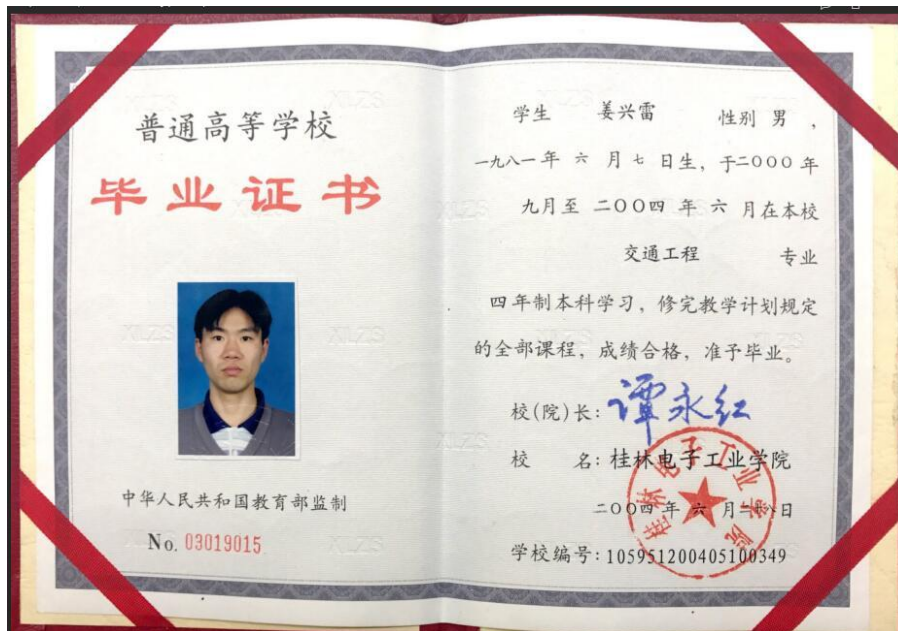 普通高等学校
毕业证书
中华人民共和国教育部监制
No. 03019015
学生 姜兴雷 性别 男 ,
一九八一年 六 月 七 日生, 于二〇〇〇年
九月至 二〇〇四 年 六 月在本校
交通工程 专业
四年制本科学习, 修完教学计划规定
的全部课程, 成绩合格, 准予毕业。
校(院)长: 谭永红
校 名: 桂林电子工业学院
二〇〇四年 六 月二十八日
学校编号: 105951200405100349
桂林电子工业学院
XLZS